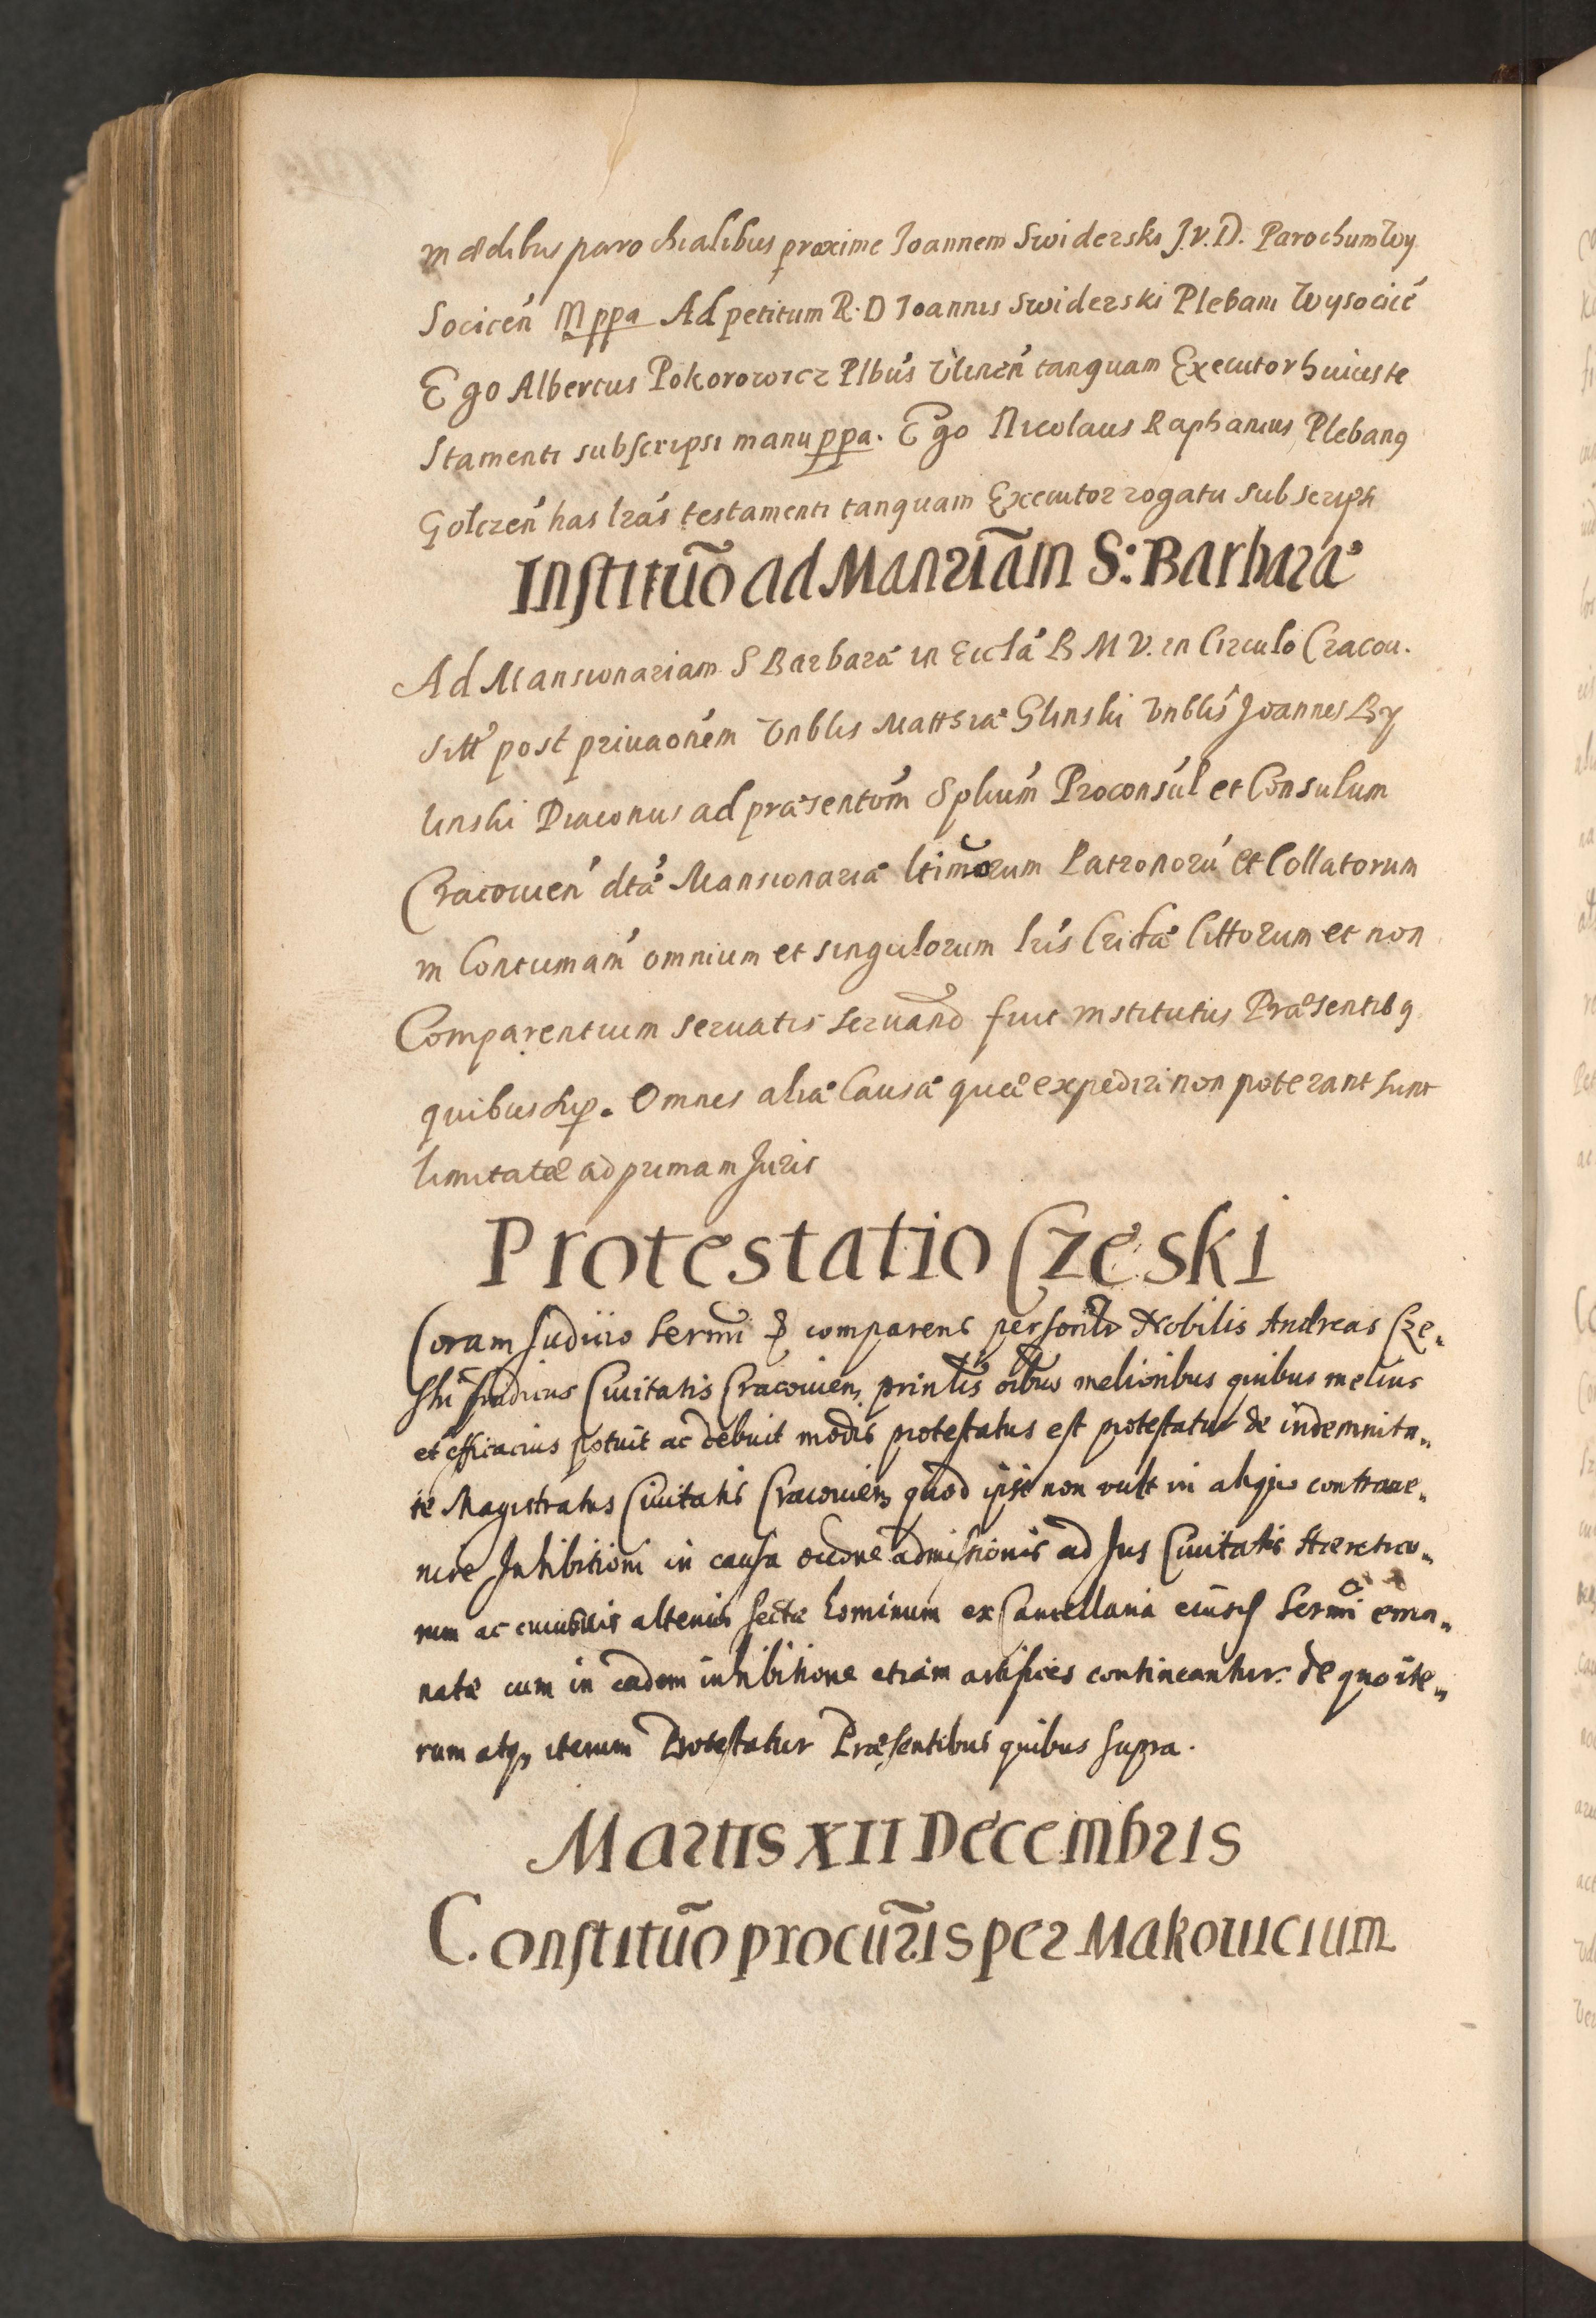 in ædibus parochialibus proxime Ioannem Swiderski J.V.D. Parochum Wy
socicen̄ Mppa Ad petitum R. D Ioannis Swiderski Plebani Wysocicē
Ego Albertus Pokorowicz Plbus Ulinen̄ tanquam Executor huius te
stamenti subscripsi manu ppa. Ego Nicolaus Raphanius Plebang
Golczen̄ has lrās testamenti tanquam Executor rogatu subscripsi
Institūo ad Mansiām S: Barbaræ
Ad Mansionariam S Barbaræ in Ecclā B M V. in Circulo Cracou.
sitt post priuaonem Vnblis Matthiæ Glinski Vnblis Joannes By
linski Diaconus ad præsentōm Splium̄ Proconsul et Consulum
Cracouien̄ dtæ Mansionariæ ltimorum Patronorū et Collatorum
in Contumam̄ omnium et singulorum lris Cridæ Cittorum et non
Comparentium seruatis seruand fuit institutus Præsentibg
quibus sup. Omnes aliæ Causæ quæ expediri non poterant sunt
limitatæ ad primam Juris
Protestatio Czeski
Coram Judicio Sermi comparens personlr Nobilis Andreas Cze„
ski Sindicus Ciuitatis Cracouien, prinlis oibus melioribus quibus melius
et efficacius potuit ac debuit modis protestatus est protestatur de indemnita„
te Magistratus Ciuitatis Cracouien, quod ipse non vult in aliquo contraue„
nire Inhibitioni in causa oione admissionis ad Jus Ciuitatis Hæretico„
rum ac cuiusuis alterius sectæ hominum ex Cancellaria eiusd Sermi ema„
natæ cum in eadem inhibitione etiam artifices contineantur. de quo ite„
rum atq, iterum Protestatur Præsentibus quibus supra.
Martis XII Decembris
Constitūo procur̄is per Makouicium